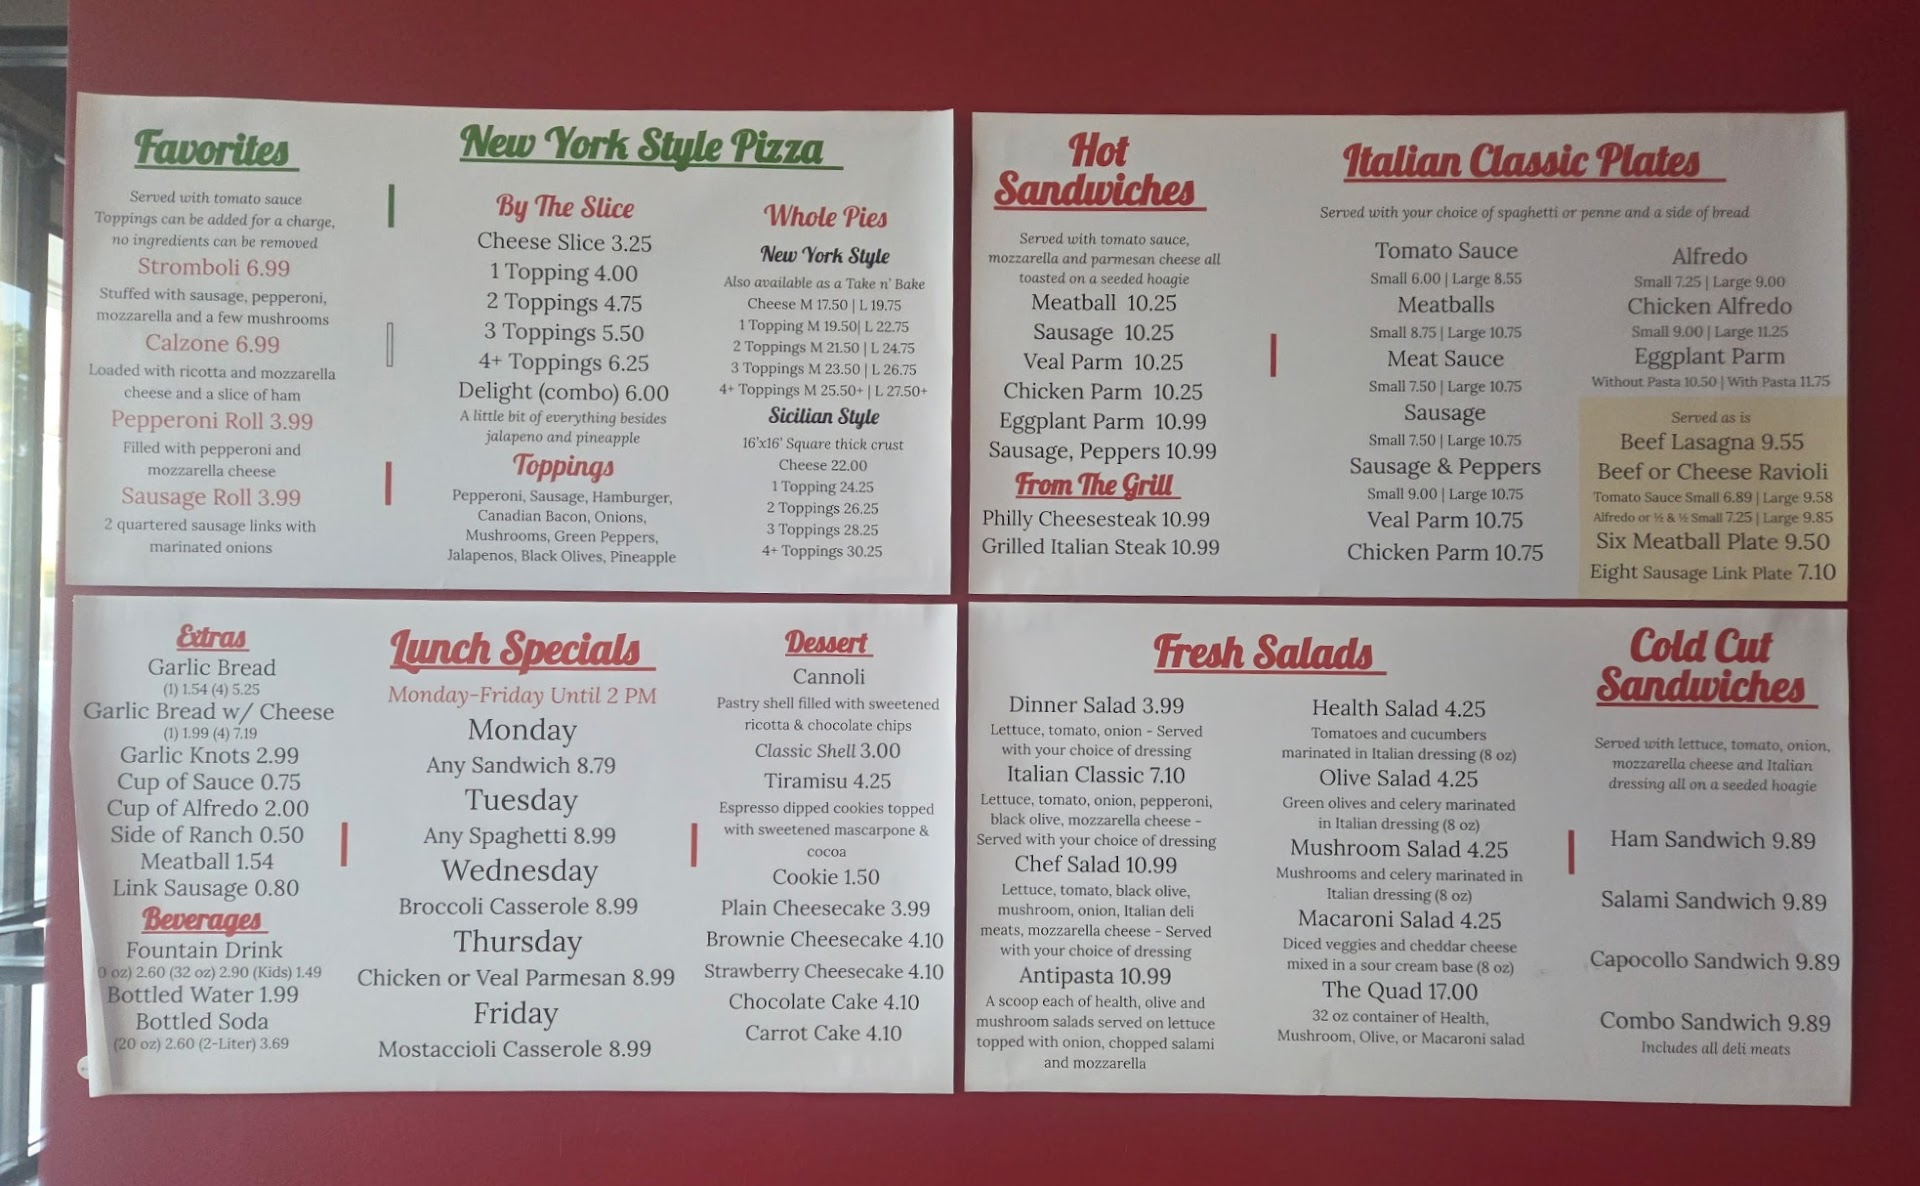 Favorites
Served with tomato sauce
Toppings can be added for a charge,
no ingredients can be removed
Stromboli 6.99
Stuffed with sausage, pepperoni,
mozzarella and a few mushrooms
Calzone 6.99
Loaded with ricotta and mozzarella
cheese and a slice of ham
Pepperoni Roll 3.99
Filled with pepperoni and
mozzarella cheese
Sausage Roll 3.99
2 quartered sausage links with
marinated onions
New York Style Pizza
By The Slice
Cheese Slice 3.25
1 Topping 4.00
2 Toppings 4.75
3 Toppings 5.50
4+ Toppings 6.25
Delight (combo) 6.00
A little bit of everything besides
jalapeno and pineapple
Toppings
Pepperoni, Sausage, Hamburger,
Canadian Bacon, Onions,
Mushrooms, Green Peppers,
Jalapenos, Black Olives, Pineapple
Whole Pies
New York Style
Also available as a Take n' Bake
Cheese M 17.50 | L 19.75
1 Topping M 19.50| L 22.75
2 Toppings M 21.50 | L 24.75
3 Toppings M 23.50 | L 26.75
4+ Toppings M 25.50+ | L 27.50+
Sicilian Style
16'x16' Square thick crust
Cheese 22.00
1 Topping 24.25
2 Toppings 26.25
3 Toppings 28.25
4+ Toppings 30.25
Hot
Sandwiches
Served with tomato sauce,
mozzarella and parmesan cheese all
toasted on a seeded hoagie
Meatball 10.25
Sausage 10.25
Veal Parm 10.25
Chicken Parm 10.25
Eggplant Parm 10.99
Sausage, Peppers 10.99
From The Grill
Philly Cheesesteak 10.99
Grilled Italian Steak 10.99
Italian Classic Plates
Served with your choice of spaghetti or penne and a side of bread
Tomato Sauce
Small 6.00 | Large 8.55
Meatballs
Small 8.75 | Large 10.75
Meat Sauce
Small 7.50 | Large 10.75
Sausage
Small 7.50 | Large 10.75
Sausage & Peppers
Small 9.00 | Large 10.75
Veal Parm 10.75
Chicken Parm 10.75
Alfredo
Small 7.25 | Large 9.00
Chicken Alfredo
Small 9.00 | Large 11.25
Eggplant Parm
Without Pasta 10.50 | With Pasta 11.75
Served as is
Beef Lasagna 9.55
Beef or Cheese Ravioli
Tomato Sauce Small 6.89 | Large 9.58
Alfredo or ½ & ½ Small 7.25 | Large 9.85
Six Meatball Plate 9.50
Eight Sausage Link Plate 7.10
Extras
Garlic Bread
(1) 1.54 (4) 5.25
Garlic Bread w/ Cheese
(1) 1.99 (4) 7.19
Garlic Knots 2.99
Cup of Sauce 0.75
Cup of Alfredo 2.00
Side of Ranch 0.50
Meatball 1.54
Link Sausage 0.80
Beverages
Fountain Drink
0 oz) 2.60 (32 oz) 2.90 (Kids) 1.49
Bottled Water 1.99
Bottled Soda
(20 oz) 2.60 (2-Liter) 3.69
Lunch Specials
Monday-Friday Until 2 PM
Monday
Any Sandwich 8.79
Tuesday
Any Spaghetti 8.99
Wednesday
Broccoli Casserole 8.99
Thursday
Chicken or Veal Parmesan 8.99
Friday
Mostaccioli Casserole 8.99
Dessert
Cannoli
Pastry shell filled with sweetened
ricotta & chocolate chips
Classic Shell 3.00
Tiramisu 4.25
Espresso dipped cookies topped
with sweetened mascarpone &
cocoa
Cookie 1.50
Plain Cheesecake 3.99
Brownie Cheesecake 4.10
Strawberry Cheesecake 4.10
Chocolate Cake 4.10
Carrot Cake 4.10
Fresh Salads
Dinner Salad 3.99
Lettuce, tomato, onion - Served
with your choice of dressing
Italian Classic 7.10
Lettuce, tomato, onion, pepperoni,
black olive, mozzarella cheese -
Served with your choice of dressing
Chef Salad 10.99
Lettuce, tomato, black olive,
mushroom, onion, Italian deli
meats, mozzarella cheese - Served
with your choice of dressing
Antipasta 10.99
A scoop each of health, olive and
mushroom salads served on lettuce
topped with onion, chopped salami
and mozzarella
Health Salad 4.25
Tomatoes and cucumbers
marinated in Italian dressing (8 oz)
Olive Salad 4.25
Green olives and celery marinated
in Italian dressing (8 oz)
Mushroom Salad 4.25
Mushrooms and celery marinated in
Italian dressing (8 oz)
Macaroni Salad 4.25
Diced veggies and cheddar cheese
mixed in a sour cream base (8 oz)
The Quad 17.00
32 oz container of Health,
Mushroom, Olive, or Macaroni salad
Cold Cut
Sandwiches
Served with lettuce, tomato, onion,
mozzarella cheese and Italian
dressing all on a seeded hoagie
Ham Sandwich 9.89
Salami Sandwich 9.89
Capocollo Sandwich 9.89
Combo Sandwich 9.89
Includes all deli meats